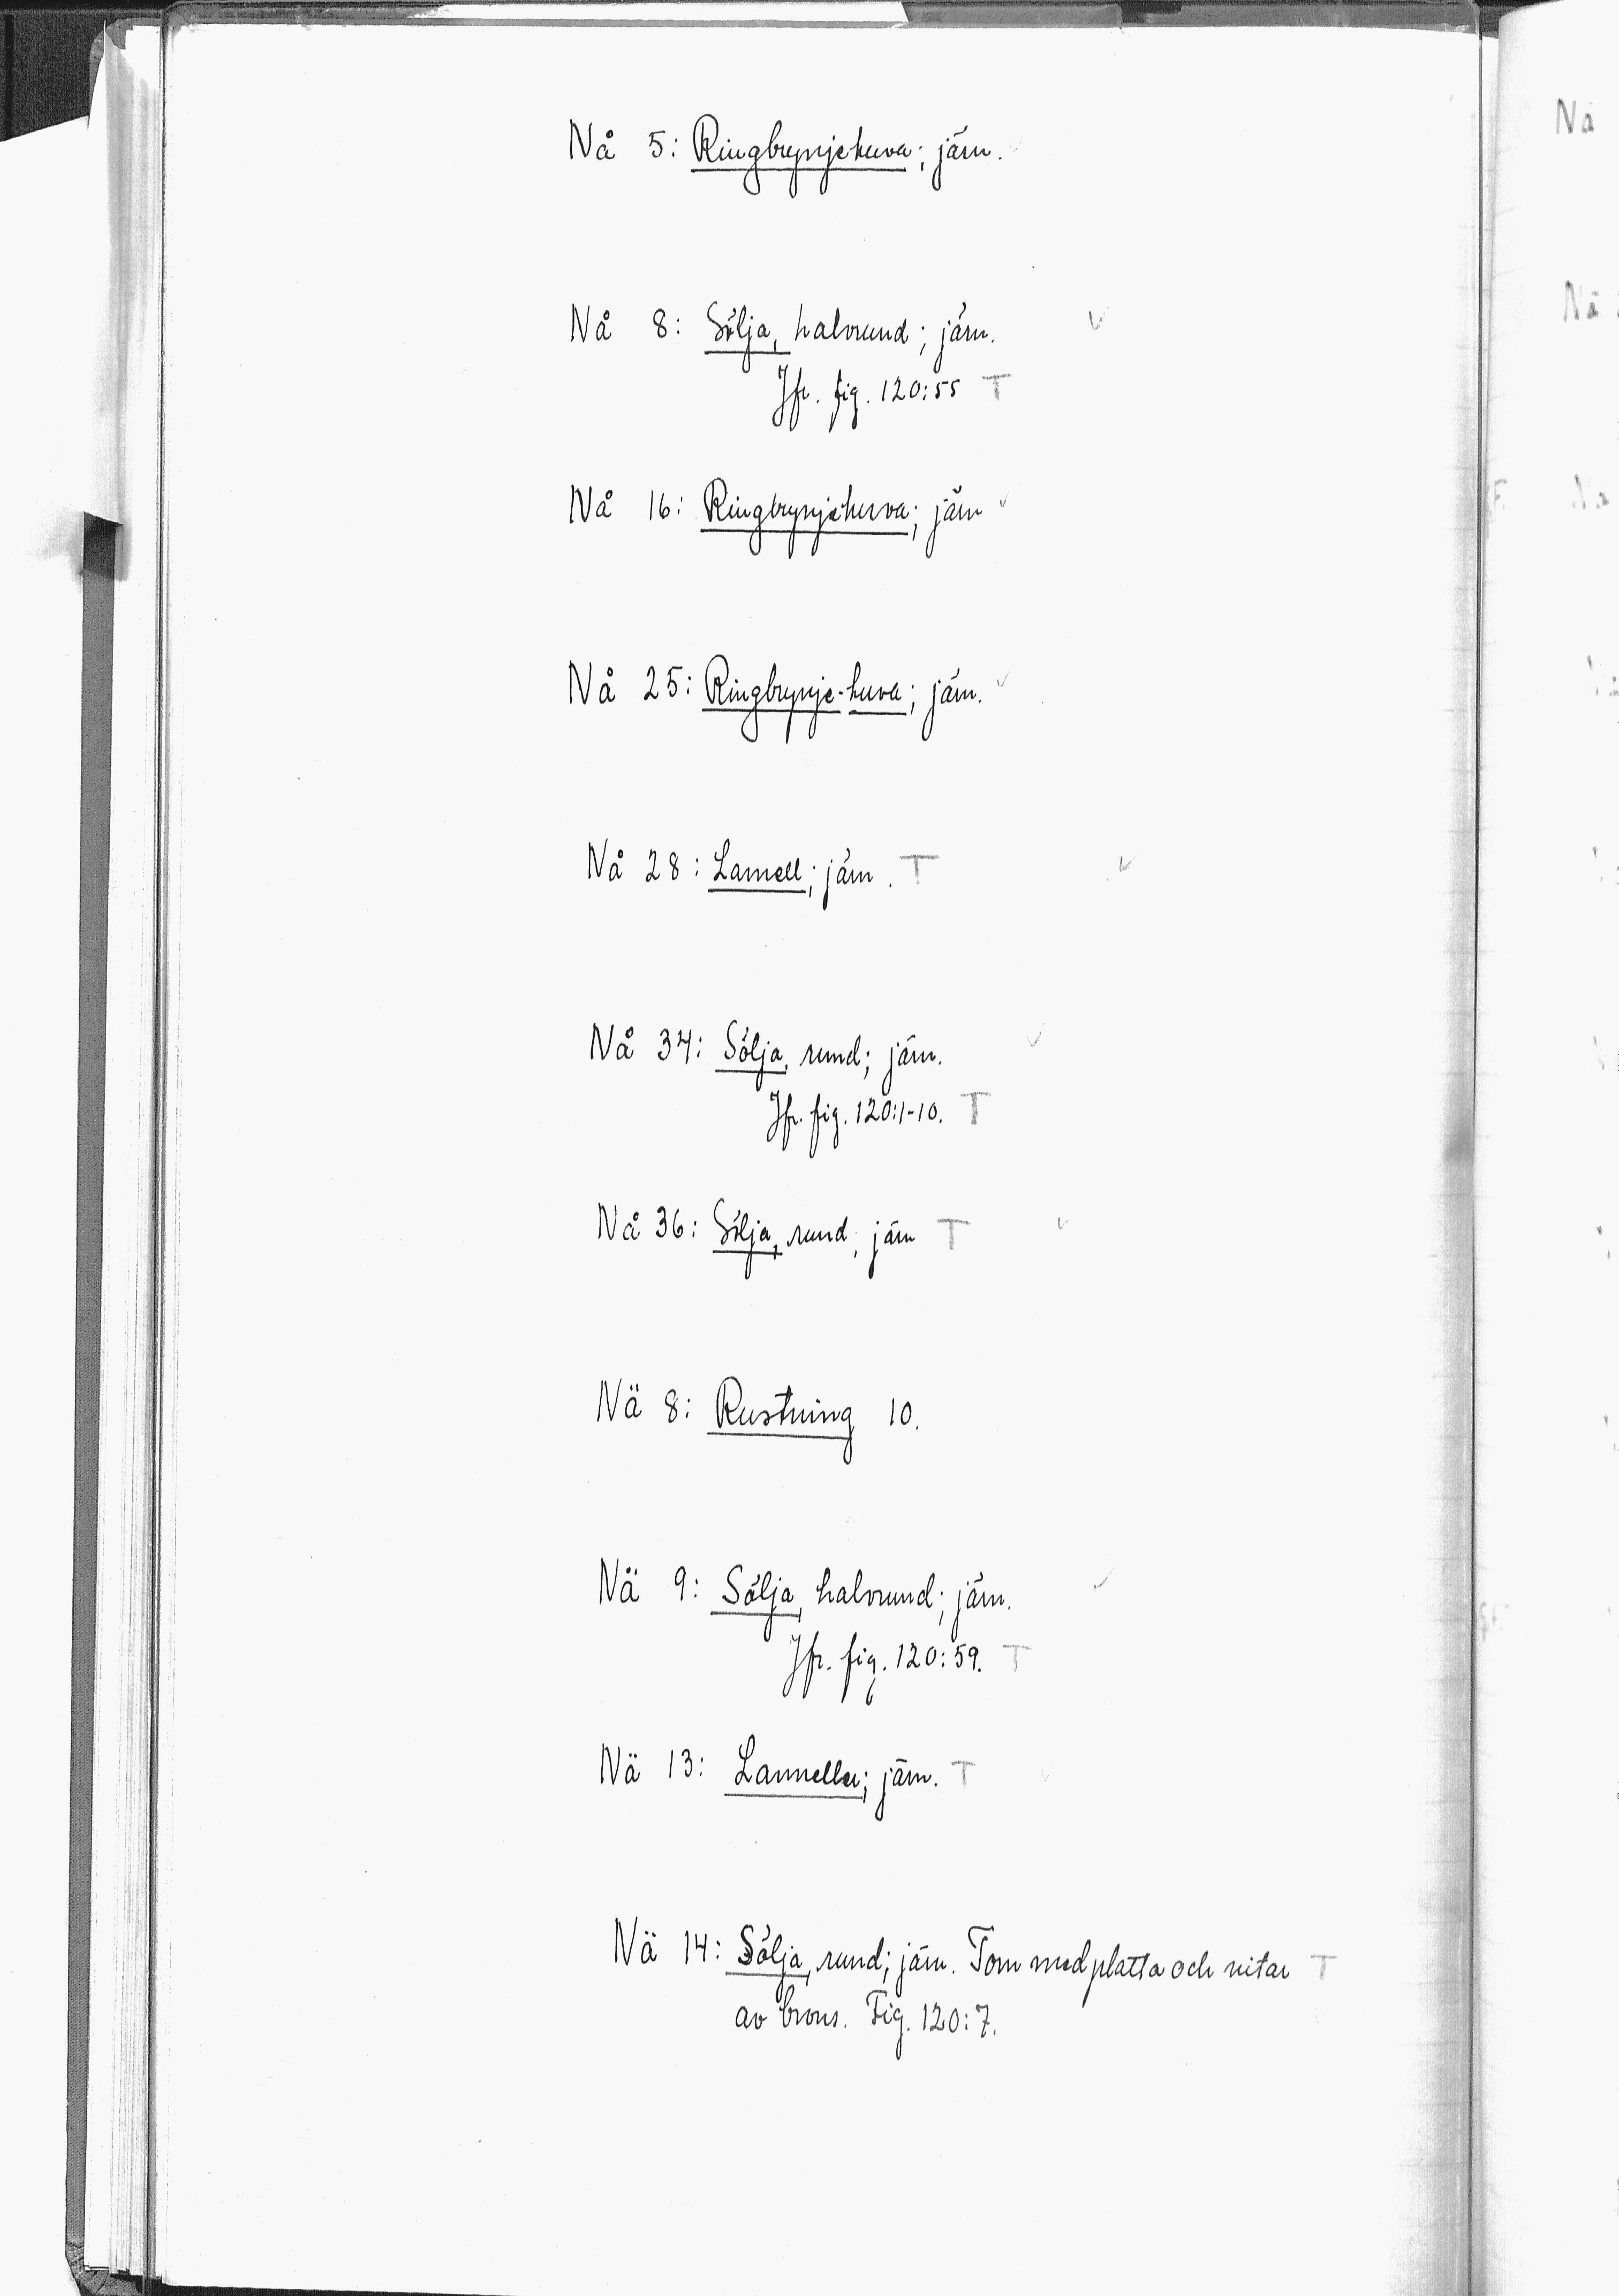 Nå 5: Ringbrynjehuva; järn.
Nå 8: Sölja, halvrund; järn. v
Jfr. fig. 120:55 T
Nå 16: Ringbrynjehuva; järn v
Nå 25: Ringbrynje-huva; järn. v
Nå 28: Lamell; järn. T v
Nå 34: Sölja, rund; järn. v
Jfr. fig. 120:1-10. T
Nå 36: Sölja, rund, järn T v
Nä 8: Rustning 10.
Nä 9: Sölja, halvrund; järn. v
Jfr. fig. 120:59. T
Nä 13: Lameller; järn. T
Nä 14: Sölja, rund; järn. Torn med platta och nitar T
av brons. Fig. 120:7.
Nå
Nå